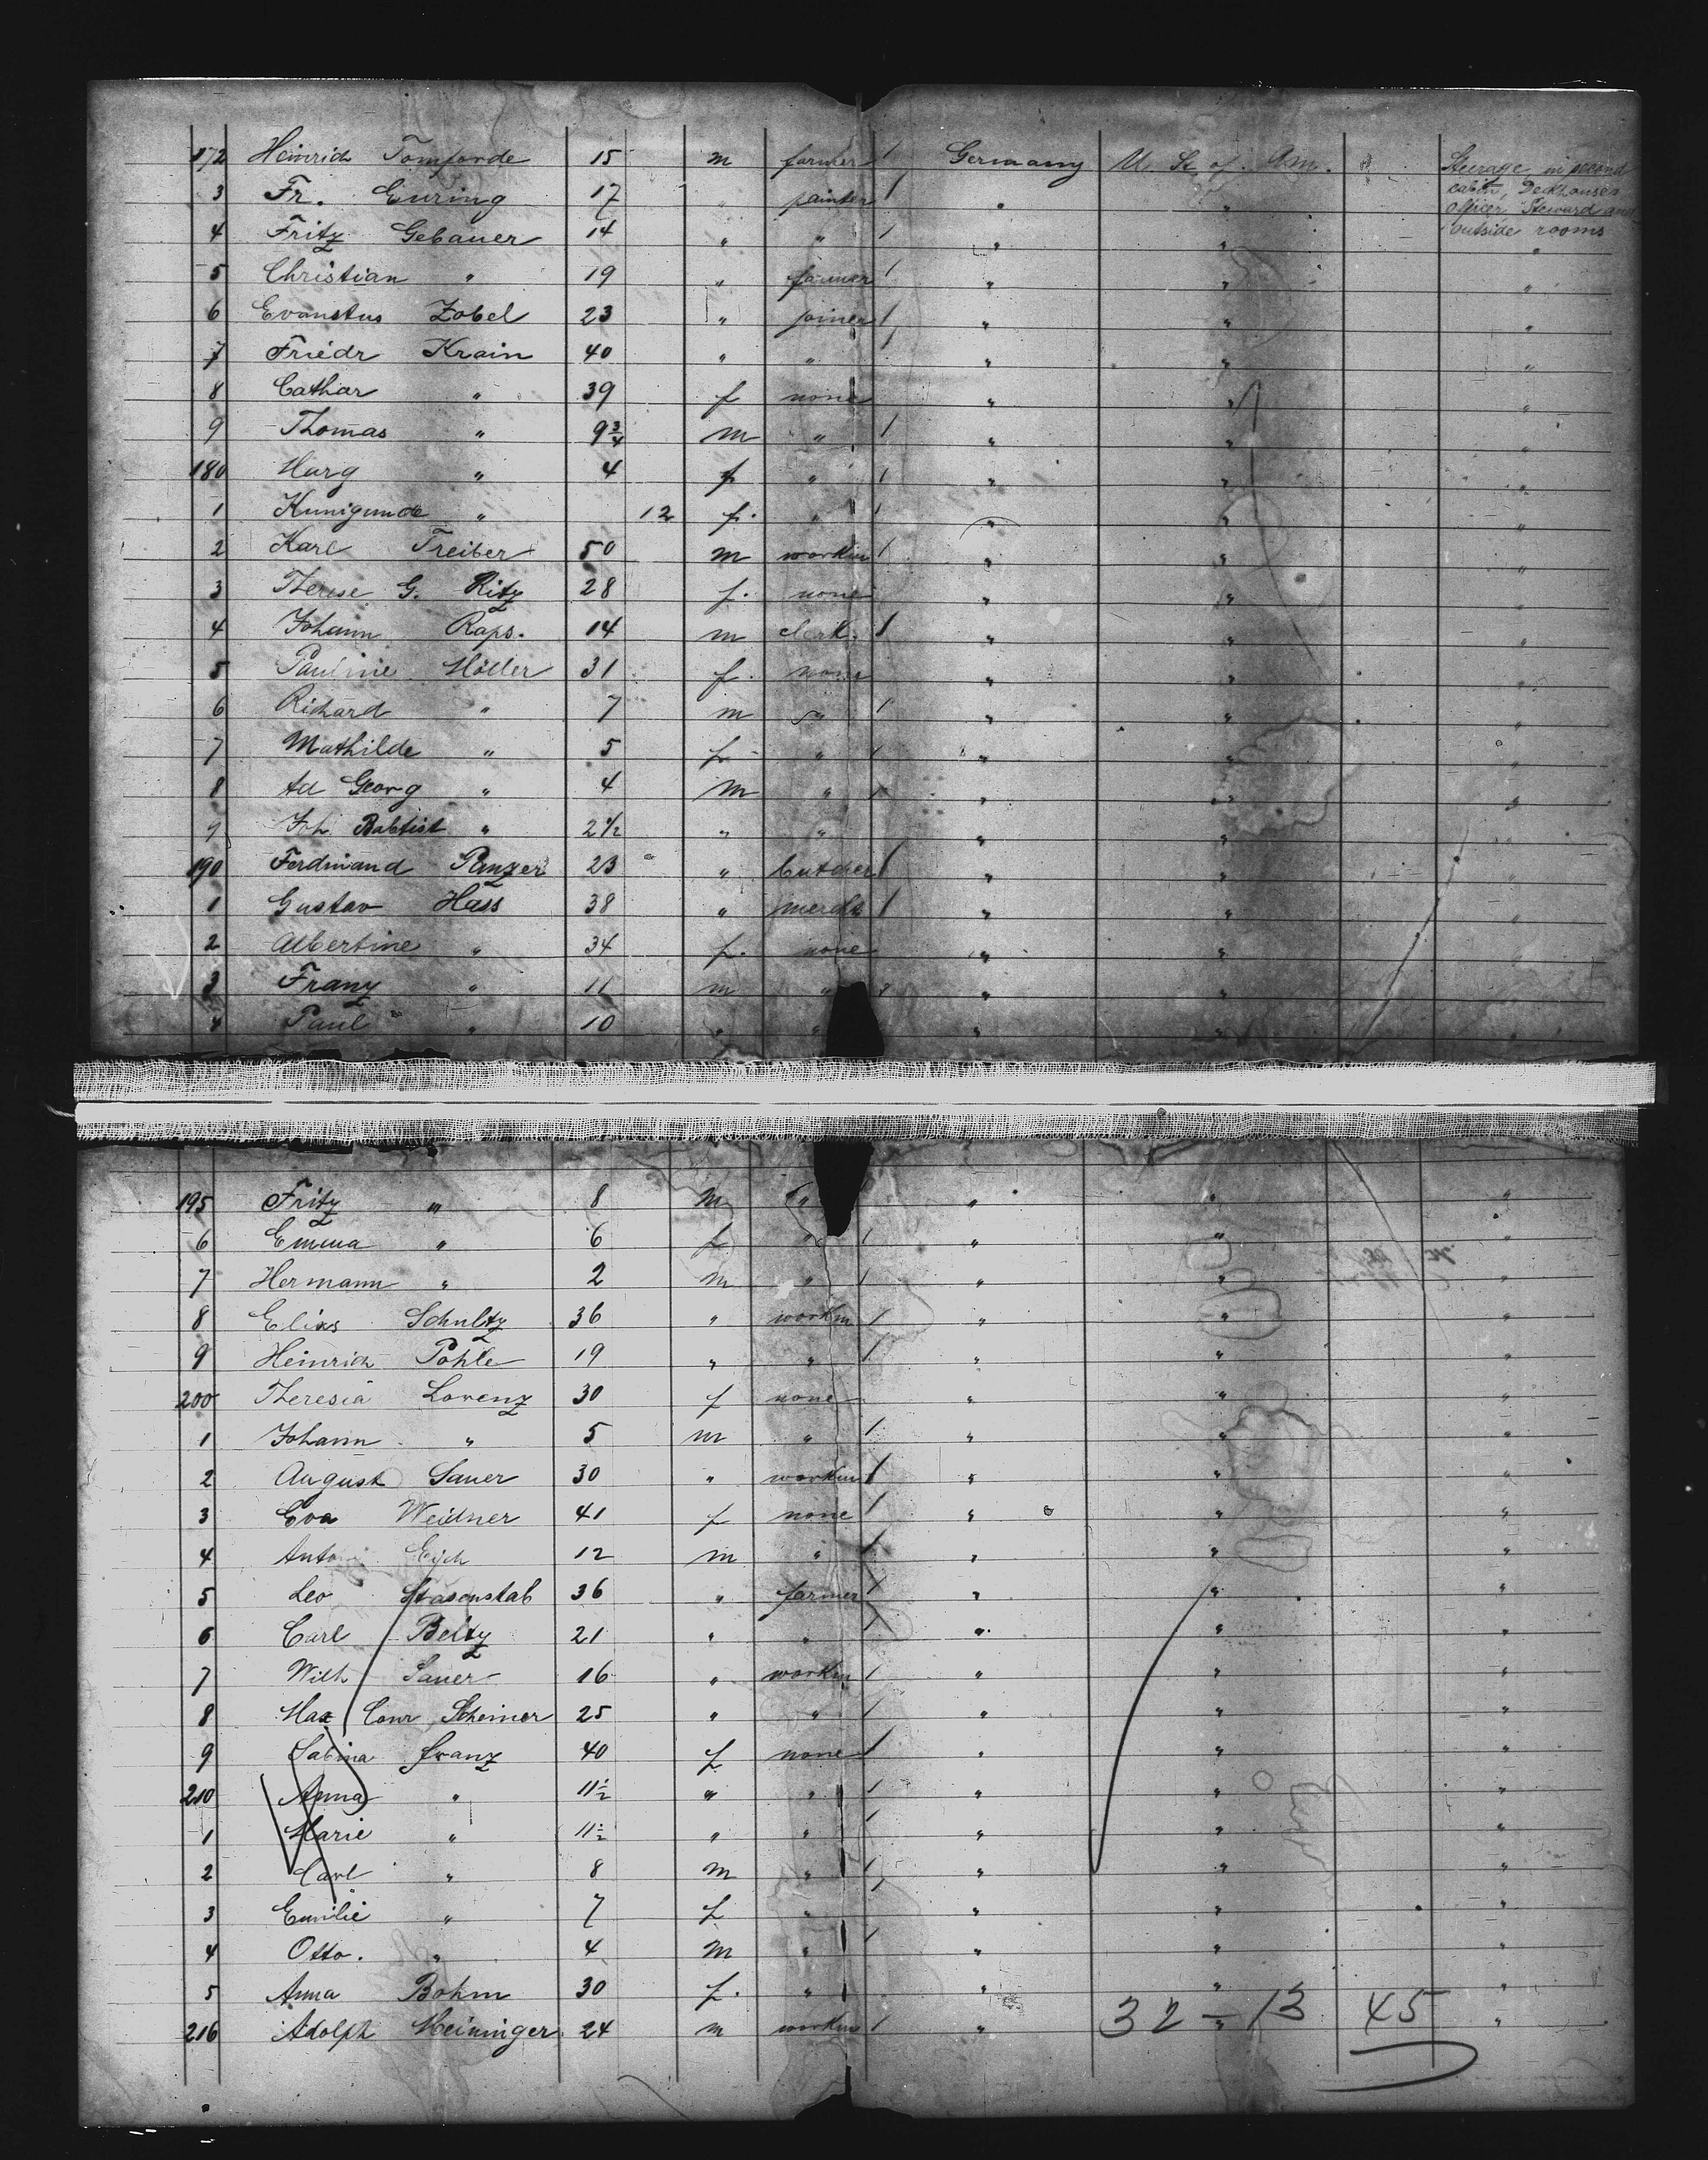 172 Heinrich Tomforde 15 m farmer / Germany U. St. of Am. Steerage in second
cabin, Deckhouses
3 Fr. Euring 17 " painter / " " officer, Steward and
outside rooms
4 Fritz Gebauer 14 " " / " " "
5 Christian " 19 " farmer / " " "
6 Evanstus Zobel 23 " joiner / " " "
7 Friedr Krain 40 " " / " " "
8 Cathar " 39 f none " " "
9 Thomas " 9 3/4 m " / " " "
180 Marg " 4 f " / " " "
1 Kunigunde " 12 f. " / " " "
2 Karl Treiber 50 m workm / " " "
3 Therese G. Ritz 28 f. none " " "
4 Johann Raps. 14 m clerk. / " " "
5 Pauline Möller 31 f. none " " "
6 Richard " 7 m " / " " "
7 Mathilde " 5 f " / " " "
8 Ad Georg " 4 m " / " " "
9 Joh Babtist " 2 1/2 " " " " "
190 Ferdinand Panzer 23 " butcher / " " "
1 Gustav Hass 38 " mercht / " " "
2 Albertine " 34 f. none " " "
3 Franz " 11 m " / " " "
4 Paul " 10 " " " " "
195 Fritz " 8 m " " " "
6 Emma " 6 f " / " " "
7 Hermann " 2 m " / " " "
8 Elias Schultz 36 " workm / " " "
9 Heinrich Pohle 19 " " / " " "
200 Theresia Lorenz 30 f none " " "
1 Johann " 5 m " / " " "
2 August Sauer 30 " workm / " " "
3 Eva Weidner 41 f none / " " "
4 Anton 12 m " / " " "
5 Leo Stasenstab 36 " farmer / " " "
6 Carl Beltz 21 " " / " " "
7 Wilh Sauer 16 " workm / " " "
8 Max Conr Scheiner 25 " " / " " "
9 Sabina Franz 40 f none / " " "
210 Anna " 11 1/2 " " / " " "
1 Marie " 11 1/2 " " / " " "
2 Carl " 8 m " / " " "
3 Emilie " 7 f " / " " "
4 Otto. " 4 m " / " " "
5 Anna Böhm 30 f. " " " "
216 Adolph Meininger 24 m workm / " " "
32 - 13 45